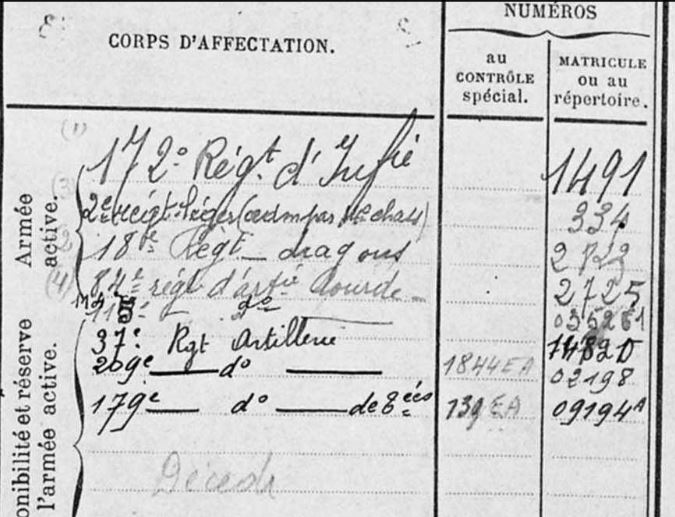 NUMÉROS
CORPS D'AFFECTATION.
au CONTRÔLE spécial.
MATRICULE ou au répertoire.
Armée active.
(1) 172e Régt d'Infie 1491
(3) 2e régt léger (adm par 11e chass) 334
(2) 18e Régt dragons
(4) 84e régt d'artie lourde 2725
115e do
onibilité et réserve
l'armée active.
37e Rgt Artillerie
209e do 1844 EA 02198
179e do de 8 ées 139 EA 09194A
Décédé